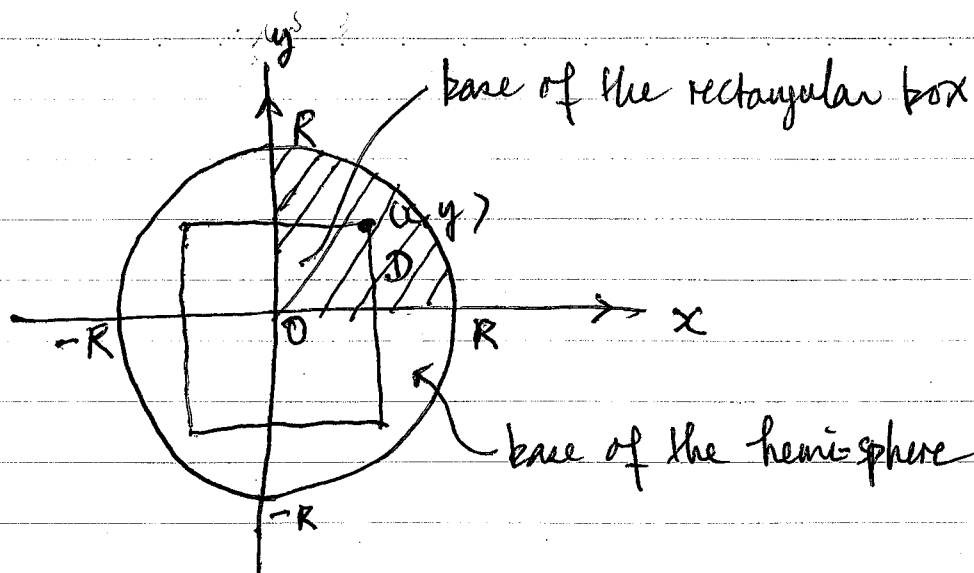 y
base of the rectangular box
R
(x, y)
D
-R
O
R
x
base of the hemi-sphere
-R